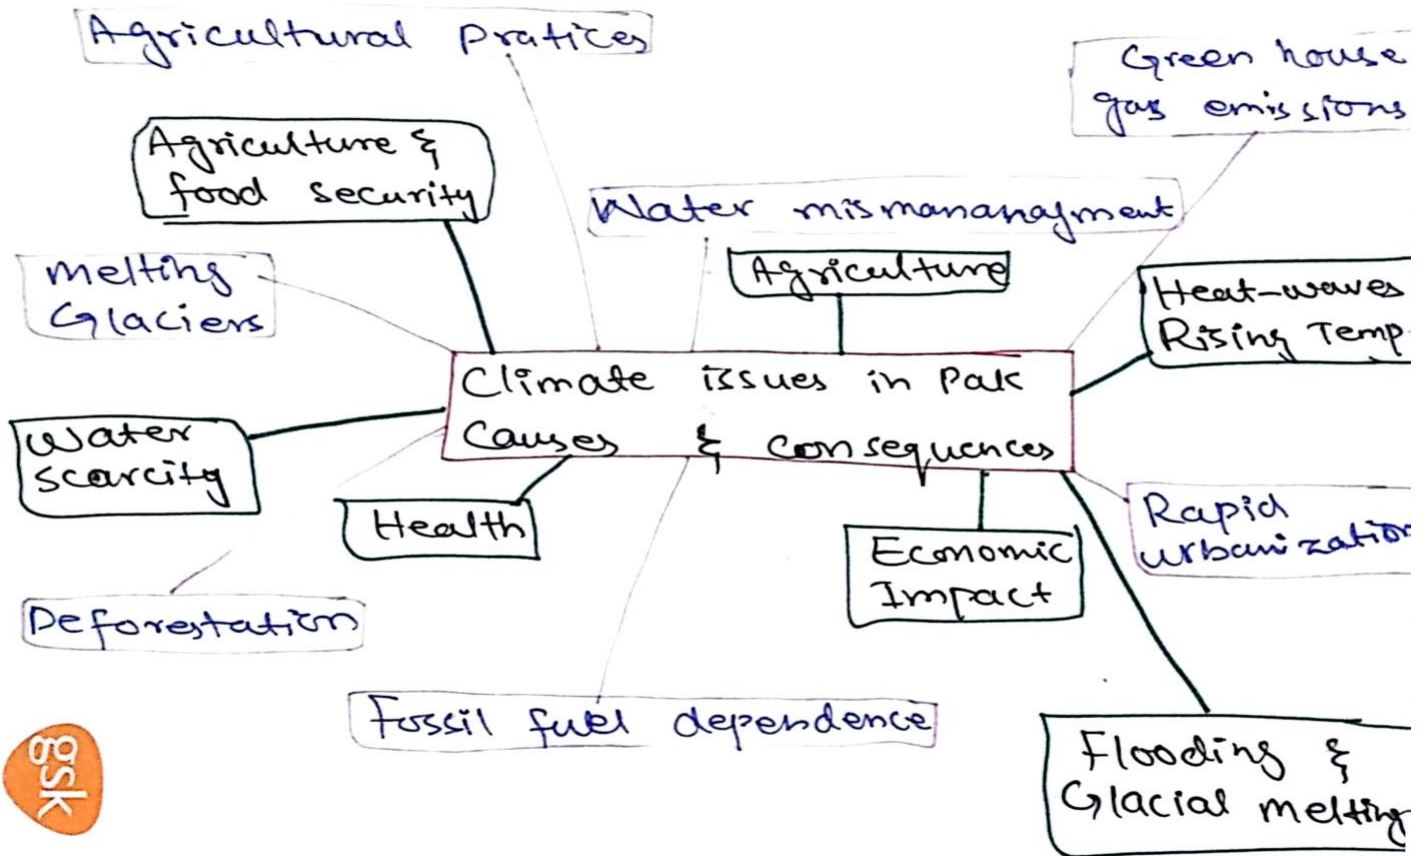 Agricultural pratices
Green house
gas emissions
Agriculture &
food security
Water mismananagment
melting
Glaciers
Agriculture
Heat-waves
Rising Temp
Climate issues in Pak
Causes & consequences
Water
scarcity
Health
Economic
Impact
Rapid
urbanization
Deforestation
Fossil fuel dependence
Flooding &
Glacial melting
gsk